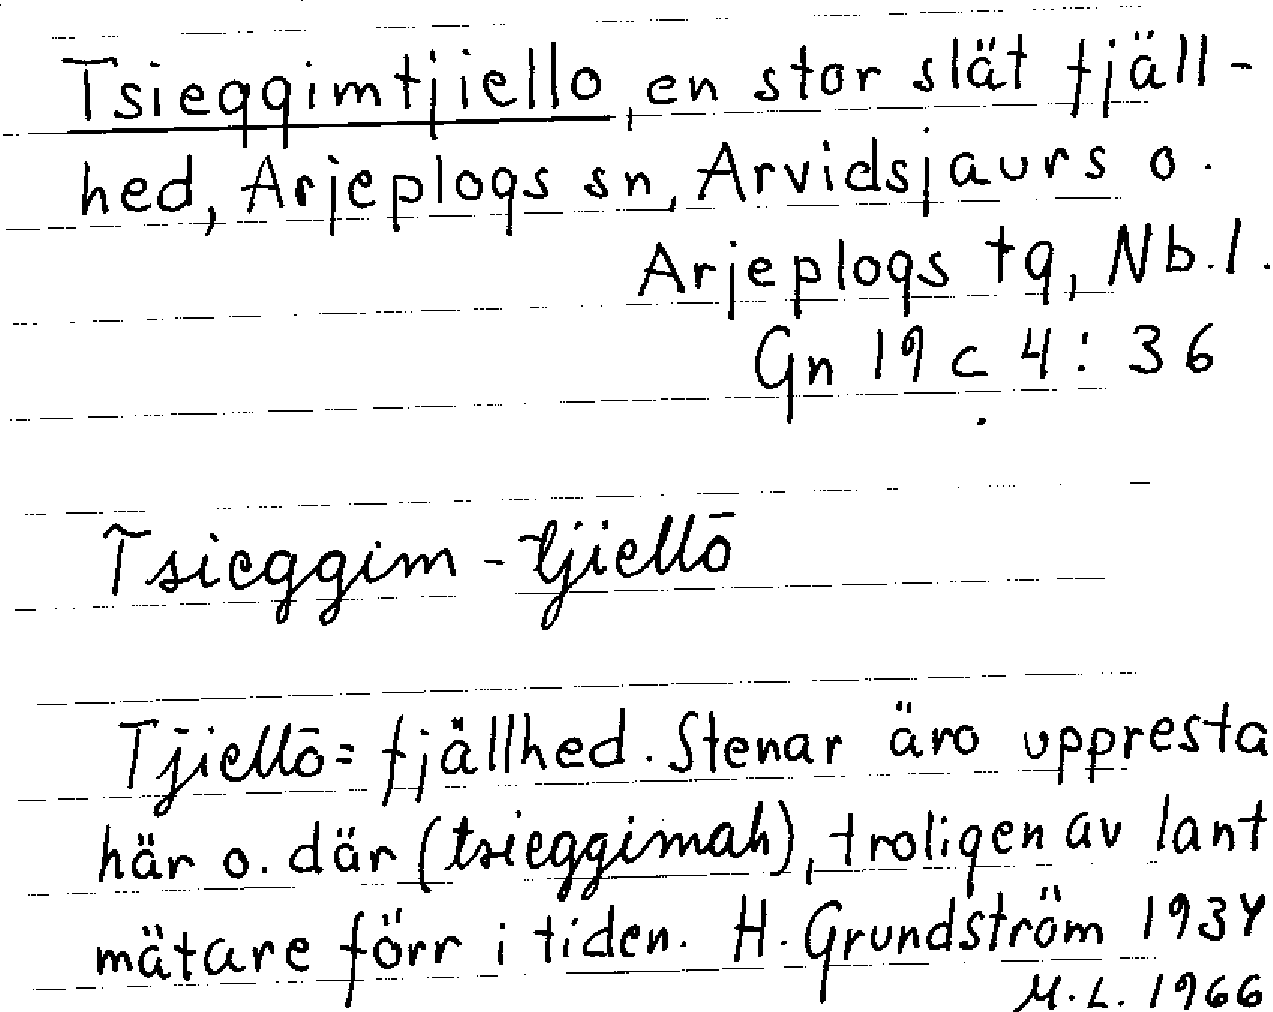 Tsieggimtjiello, en stor slät fjäll-
hed, Arjeplogs sn, Arvidsjaurs o.
Arjeplogs tg, Nb.l.
Gn 19 c 4:36
Tsieggim-tjiellō
Tjiellō = fjällhed. Stenar äro uppresta
här o. där (tsieggimah), troligen av lant
mätare förr i tiden. H. Grundström 1934
M.L. 1966